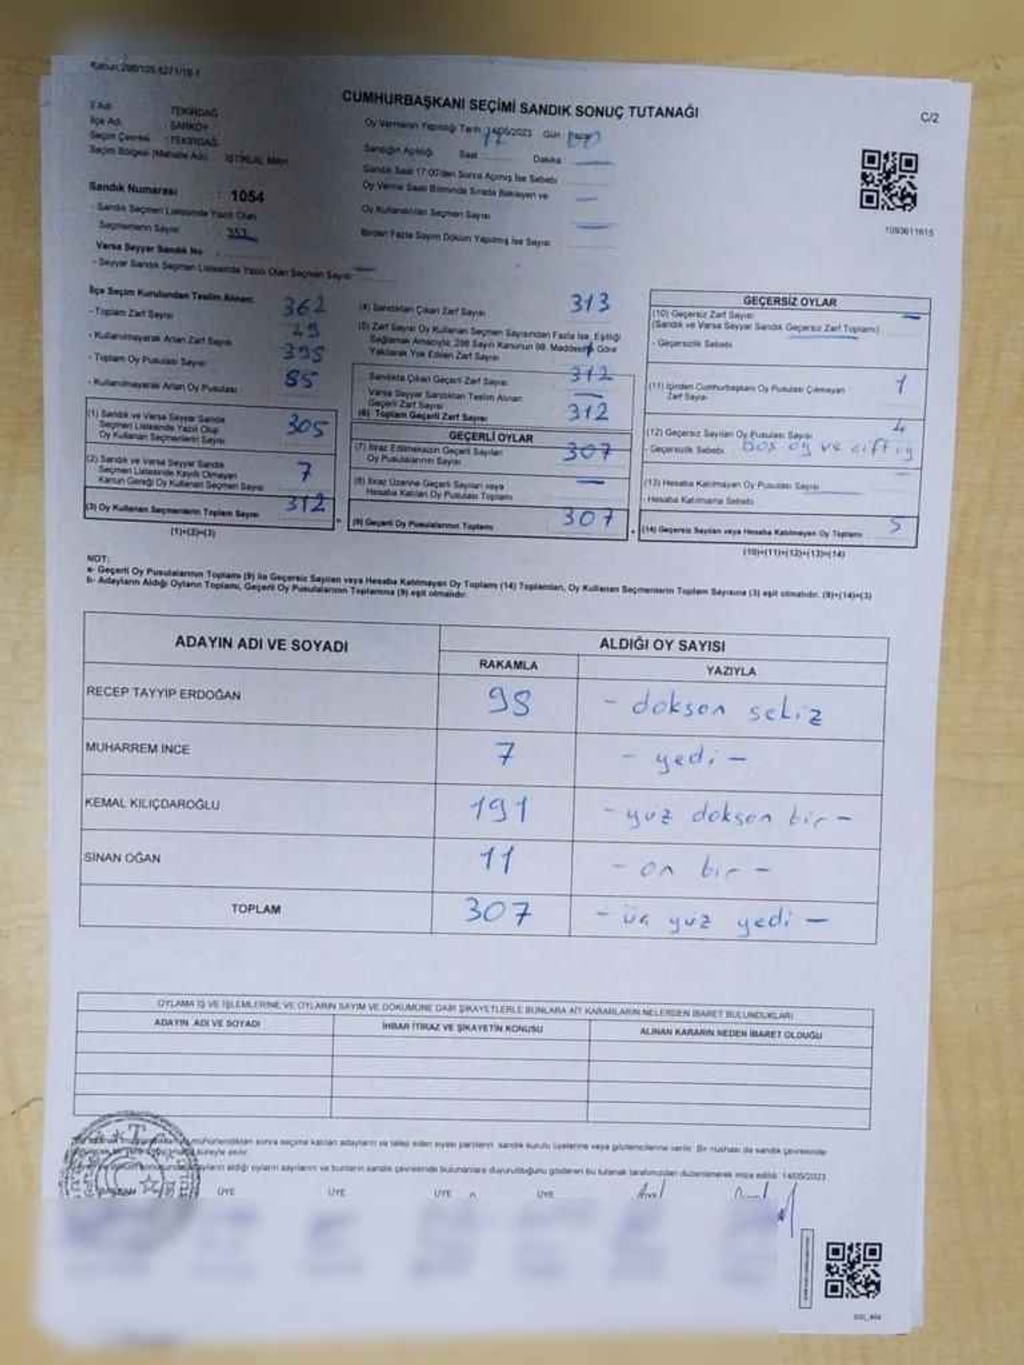 CUMHURBAŞKANI SEÇİMİ SANDIK SONUÇ TUTANAĞI
C/2
İl Adı TEKİRDAĞ
İlçe Adı ŞARKÖY
Seçim Çevresi TEKİRDAĞ
Seçim Bölgesi (Mahalle Adı) İSTİKLAL MAH
Oy Vermenin Yapıldığı Tarih 14/05/2023 Gün
Sandığın Açıldığı Saat Dakika
Sandık Saat 17:00'den Sonra Açılmış İse Sebebi
Oy Verme Saati Bitiminde Sırada Bekleyen ve
Oy Kullandırılan Seçmen Sayısı
Birden Fazla Sayım Döküm Yapılmış İse Sayısı
Sandık Numarası : 1054
- Sandık Seçmen Listesinde Yazılı Olan
Seçmenlerin Sayısı
Varsa Seyyar Sandık No
- Seyyar Sandık Seçmen Listesinde Yazılı Olan Seçmen Sayısı
1093611615
İlçe Seçim Kurulundan Teslim Alınan;
- Toplam Zarf Sayısı 362
- Kullanılmayarak Artan Zarf Sayısı
- Toplam Oy Pusulası Sayısı
- Kullanılmayarak Artan Oy Pusulası 85
(1) Sandık ve Varsa Seyyar Sandık
Seçmen Listesinde Yazılı Olup
Oy Kullanan Seçmenlerin Sayısı 305
(2) Sandık ve Varsa Seyyar Sandık
Seçmen Listesinde Kayıtlı Olmayan
Kanun Gereği Oy Kullanan Seçmen Sayısı 7
(3) Oy Kullanan Seçmenlerin Toplam Sayısı 312
(1)+(2)=(3)
(4) Sandıktan Çıkan Zarf Sayısı 313
(5) Zarf Sayısı Oy Kullanan Seçmen Sayısından Fazla İse, Eşitliği
Sağlamak Amacıyla, 298 Sayılı Kanunun 98. Maddesine Göre
Yakılarak Yok Edilen Zarf Sayısı
Sandıkta Çıkan Geçerli Zarf Sayısı 312
Varsa Seyyar Sandıktan Teslim Alınan
Geçerli Zarf Sayısı
(6) Toplam Geçerli Zarf Sayısı 312
GEÇERLİ OYLAR
(7) İtiraz Edilmeksizin Geçerli Sayılan
Oy Pusulalarının Sayısı 307
(8) İtiraz Üzerine Geçerli Sayılan veya
Hesaba Katılan Oy Pusulası Toplamı —
(9) Geçerli Oy Pusulalarının Toplamı 307
GEÇERSİZ OYLAR
(10) Geçersiz Zarf Sayısı —
(Sandık ve Varsa Seyyar Sandık Geçersiz Zarf Toplamı)
- Geçersizlik Sebebi
(11) İçinden Cumhurbaşkanı Oy Pusulası Çıkmayan
Zarf Sayısı 1
(12) Geçersiz Sayılan Oy Pusulası Sayısı 4
- Geçersizlik Sebebi Boş oy ve çift oy
(13) Hesaba Katılmayan Oy Pusulası Sayısı
- Hesaba Katılmama Sebebi
(14) Geçersiz Sayılan veya Hesaba Katılmayan Oy Toplamı 5
(10)+(11)+(12)+(13)=(14)
NOT:
a- Geçerli Oy Pusulalarının Toplamı (9) ile Geçersiz Sayılan veya Hesaba Katılmayan Oy Toplamı (14) Toplamları, Oy Kullanan Seçmenlerin Toplam Sayısına (3) eşit olmalıdır. (9)+(14)=(3)
b- Adayların Aldığı Oyların Toplamı, Geçerli Oy Pusulalarının Toplamına (9) eşit olmalıdır.
ADAYIN ADI VE SOYADI ALDIĞI OY SAYISI
RAKAMLA YAZIYLA
RECEP TAYYİP ERDOĞAN 98 - doksan sekiz
MUHARREM İNCE 7 - yedi -
KEMAL KILIÇDAROĞLU 191 - yüz doksan bir -
SİNAN OĞAN 11 - on bir -
TOPLAM 307 - üç yüz yedi -
OYLAMA İŞ VE İŞLEMLERİNE VE OYLARIN SAYIM VE DÖKÜMÜNE DAİR ŞİKAYETLERLE BUNLARA AİT KARARLARIN NELERDEN İBARET BULUNDUKLARI
ADAYIN ADI VE SOYADI İHBAR İTİRAZ VE ŞİKAYETİN KONUSU ALINAN KARARIN NEDEN İBARET OLDUĞU
mühürlendikten sonra seçime katılan adayların ve talep eden siyasi partilerin sandık kurulu üyelerine veya gözlemcilerine verilir. Bir nüshası da sandık çevresinde
aldığı oyların sayılarını ve bunların sandık çevresinde bulunanlara duyurulduğunu gösteren bu tutanak tarafımızdan düzenlenerek imza edildi. 14/05/2023
BAŞKAN ÜYE ÜYE ÜYE ÜYE